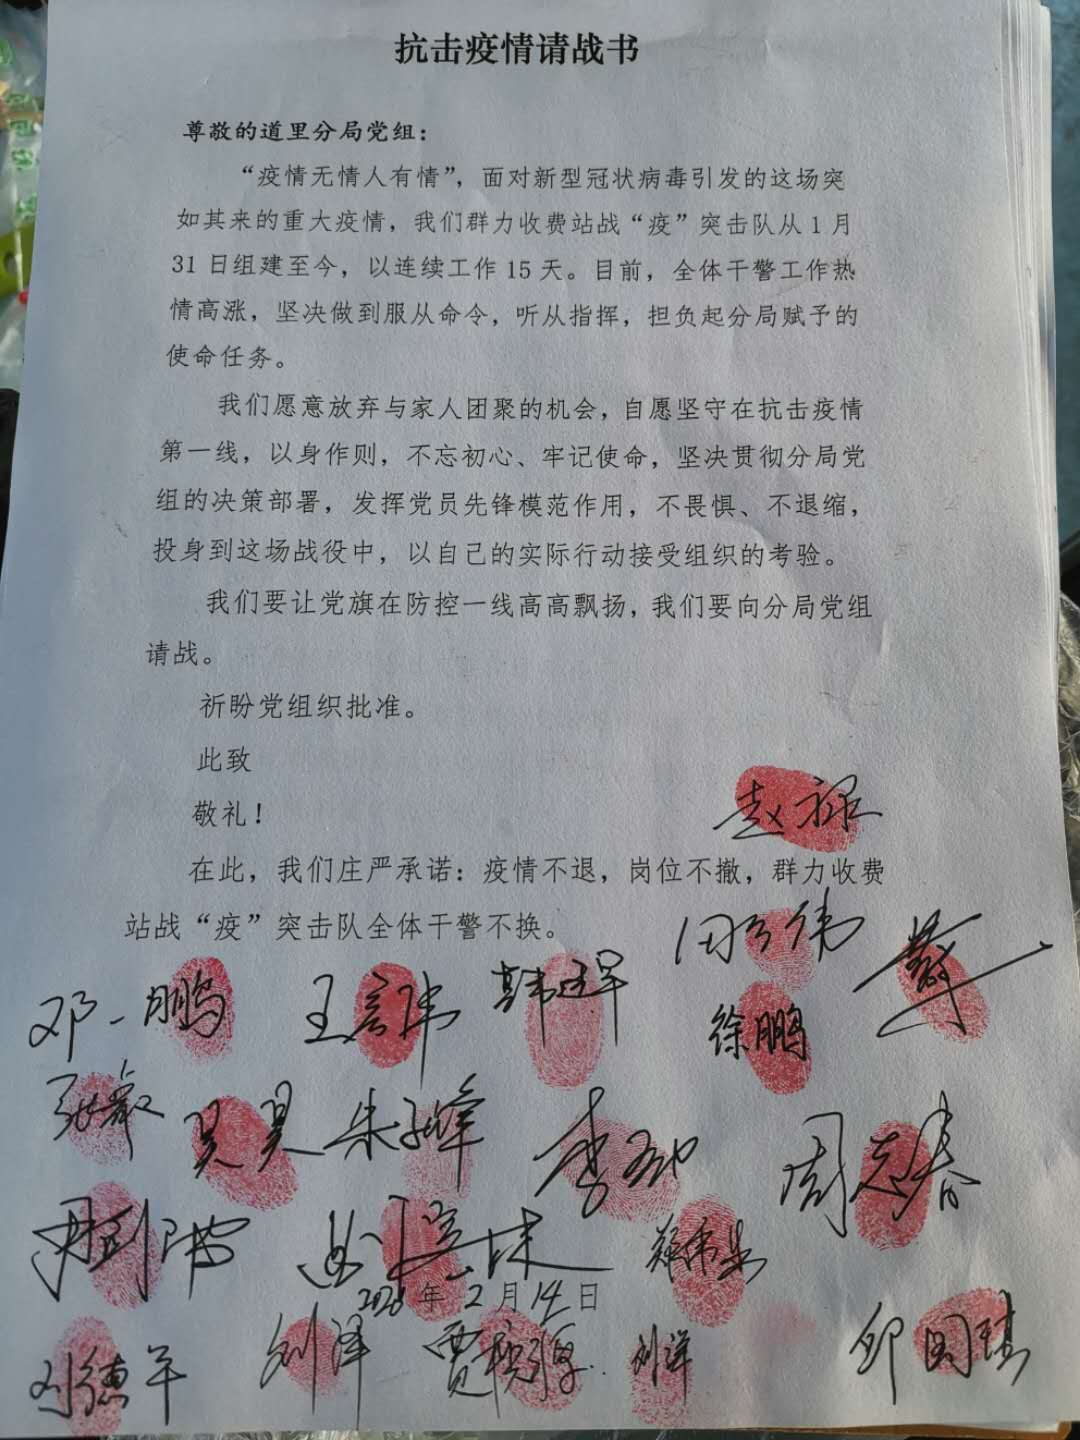 抗击疫情请战书
尊敬的道里分局党组：
“疫情无情人有情”，面对新型冠状病毒引发的这场突
如其来的重大疫情，我们群力收费站战“疫”突击队从1月
31日组建至今，以连续工作15天。目前，全体干警工作热
情高涨，坚决做到服从命令，听从指挥，担负起分局赋予的
使命任务。
我们愿意放弃与家人团聚的机会，自愿坚守在抗击疫情
第一线，以身作则，不忘初心、牢记使命，坚决贯彻分局党
组的决策部署，发挥党员先锋模范作用，不畏惧、不退缩，
投身到这场战役中，以自己的实际行动接受组织的考验。
我们要让党旗在防控一线高高飘扬，我们要向分局党组
请战。
祈盼党组织批准。
此致
敬礼！
在此，我们庄严承诺：疫情不退，岗位不撤，群力收费
站战“疫”突击队全体干警不换。
邓一鹏
徐鹏
吴昊 朱子峰
周志春
2020年2月14日
刘德军 刘泽 刘洋